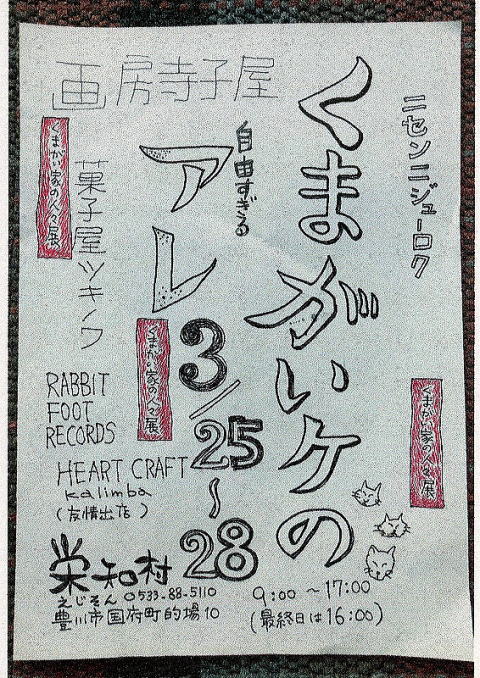 ニセンニジューロク
くまがいケの
自由すぎる
アレ
画房寺子屋
菓子屋ツキノワ
くまがい家の人々展
くまがい家の人々展
くまがい家の人々展
3/25
〜
28
RABBIT
FOOT
RECORDS
HEART CRAFT
kalimba
(友情出店)
栄和村
えじそん 0533-88-5110
豊川市国府町的場10
9:00 〜17:00
(最終日は16:00)